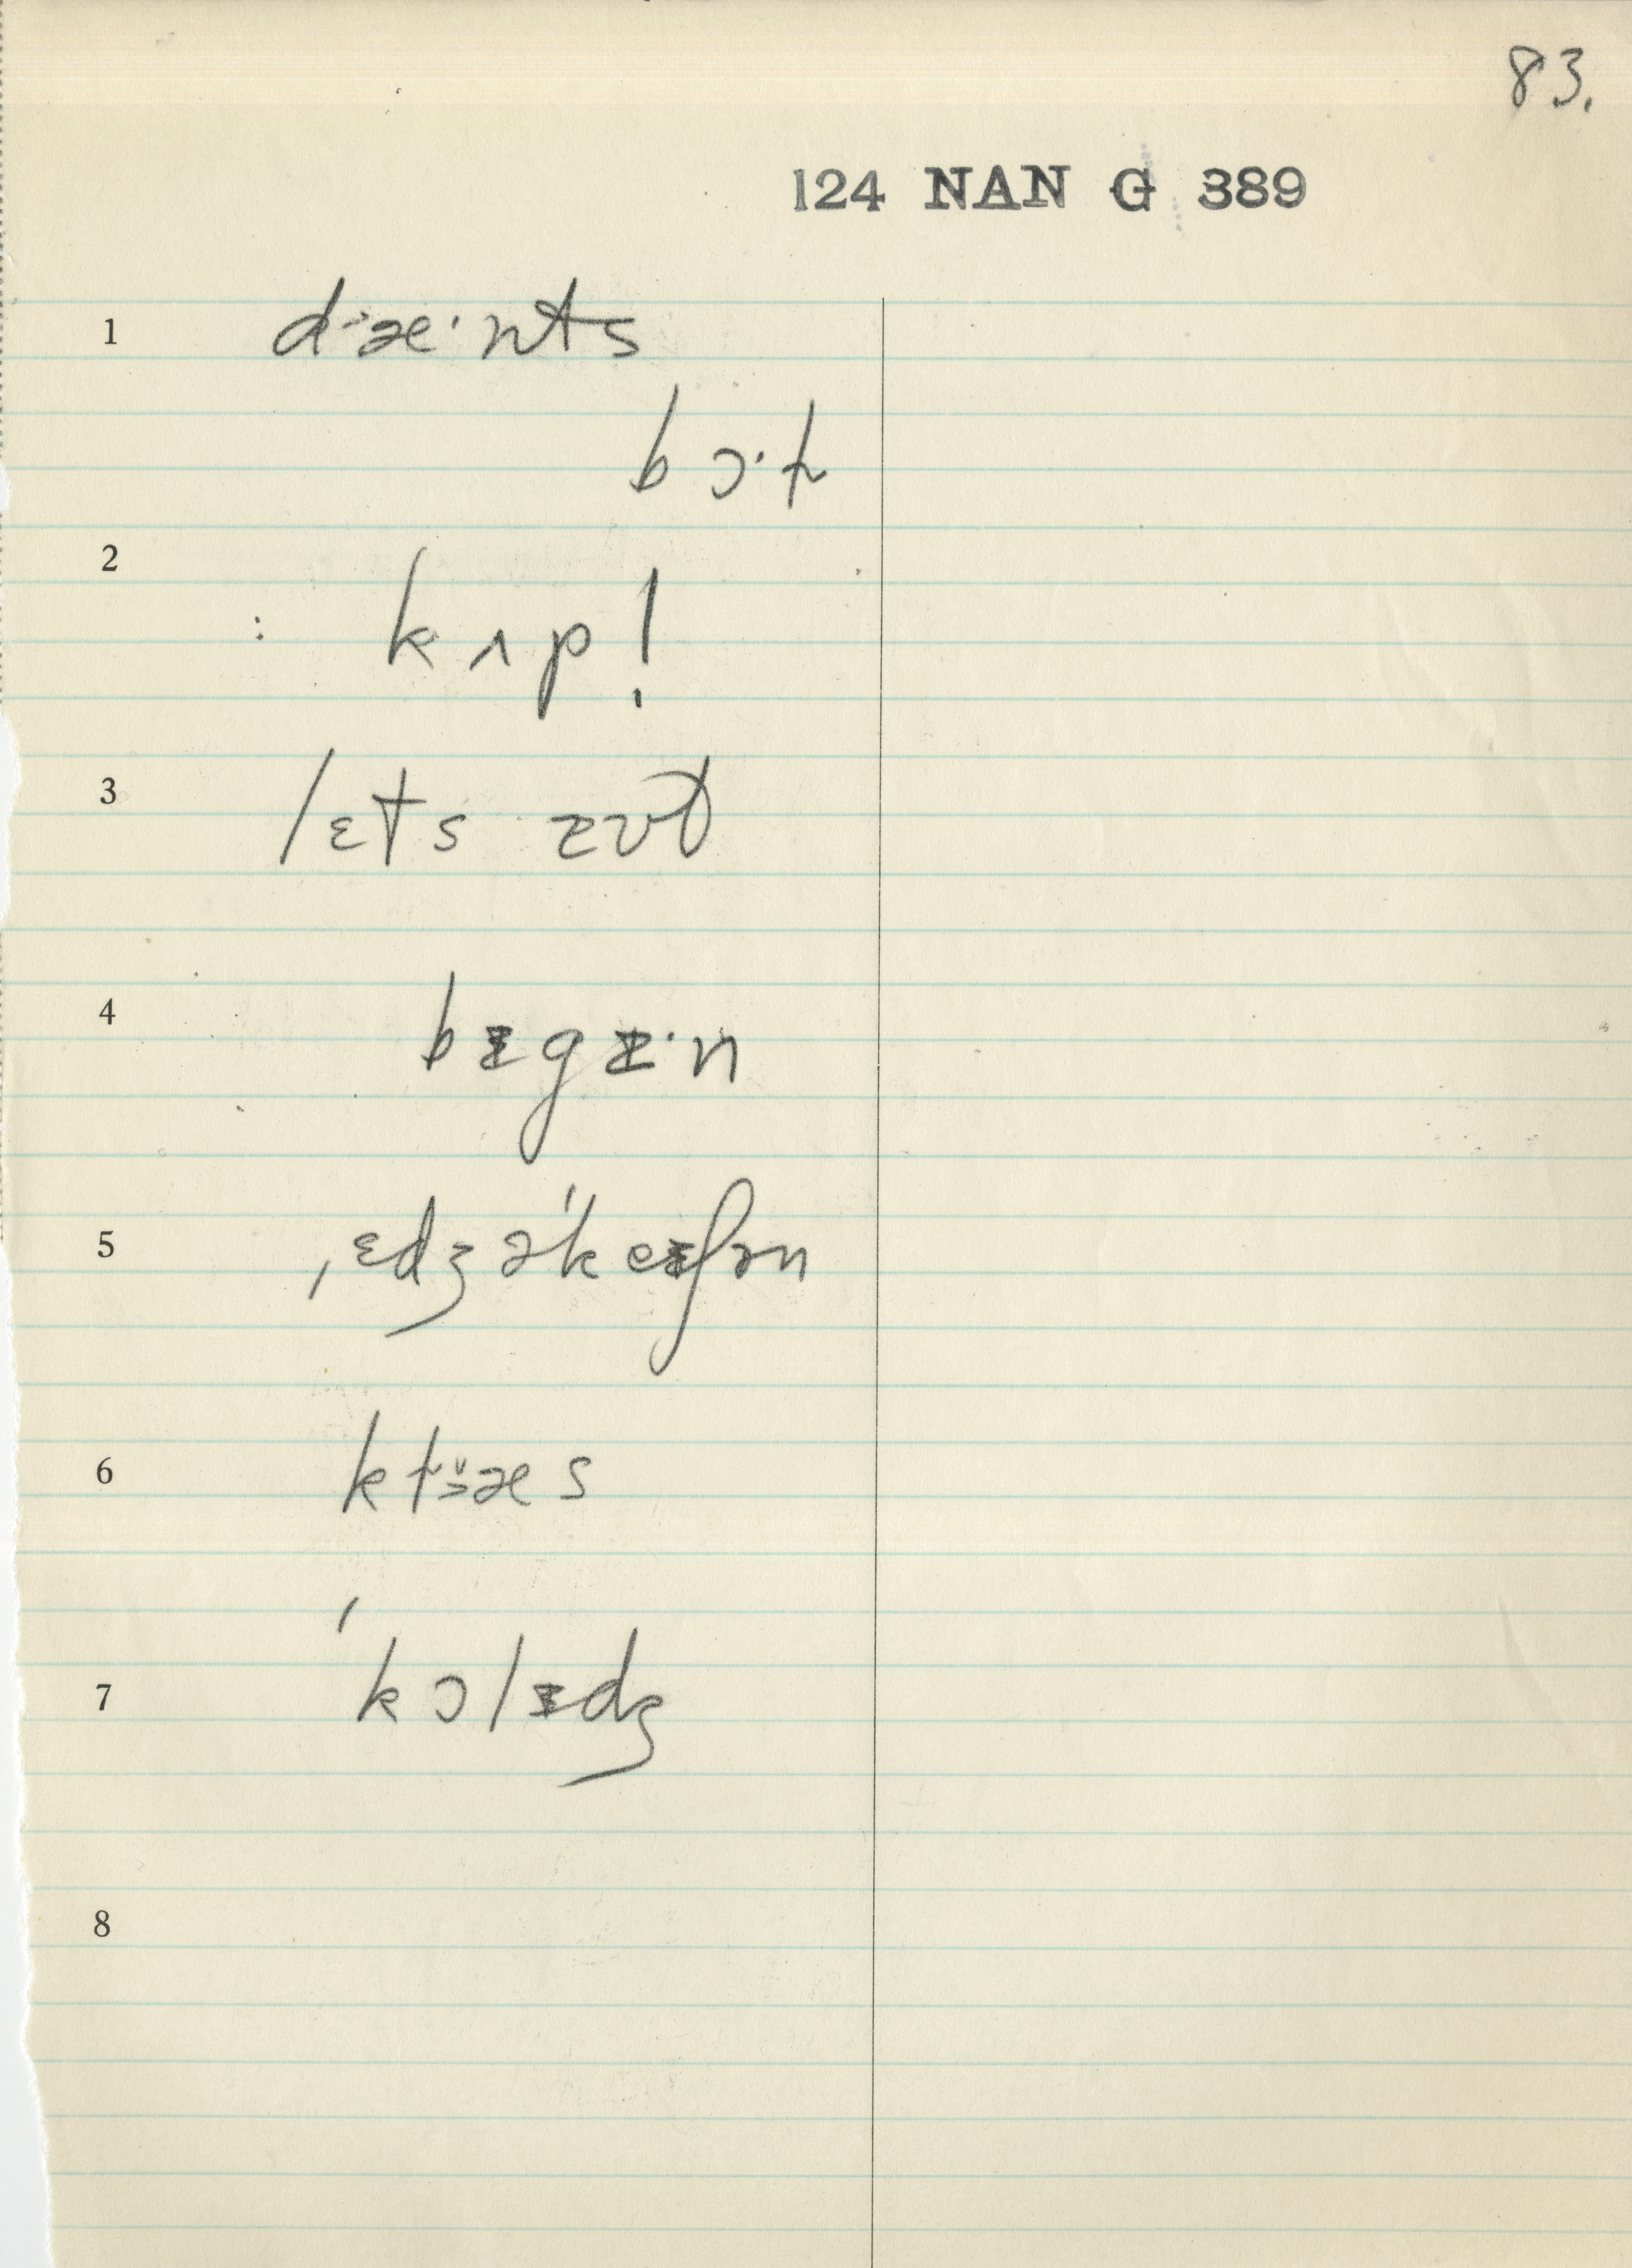 83.
124 NAN G 389
1 d˃æ·nts
bɔ·ɫ
2 : kʌp!
3 lɛts
4 bᵻgᵻ·n
5 ˌɛdʒəˈkeᵻʃən
6 kɫæs
7 ˈkɔlᵻdʒ
8